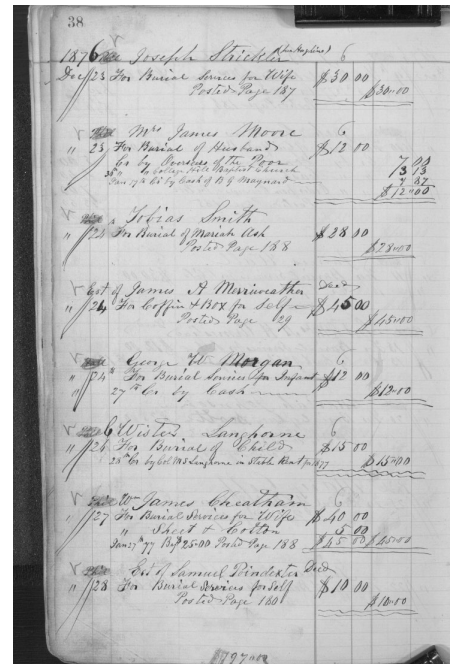 38
1876 Joseph Strickler (Lu Hopkins) 6
Dec 23 For Burial Services for Wife $30 00
Posted Page 187 $30.00
Mrs James Moore 6
" 23 For Burial of Husband $12 00
Cr by Overseer of the Poor 7 00
26th " College Hill Baptist Church 3 13
Jan 17th Cr by Cash of B G Maynard 1 87
$12.00
Tobias Smith
" 24 For Burial of Mariah Ash $28 00
Posted Page 188 $28.00
Est of James A Merriweather Decd
" 24 For Coffin & Box for Self $45 00
Posted Page 29 $45.00
George W Morgan 6
" 24 For Burial Services for Infant $12 00
" 27th Cr by Cash $12.00
C Wistar Langhorne 6
" 24 For Burial of Child $15 00
28th Cr by Col M S Langhorne in Stable Rent for 1877 $15.00
Wm James Cheatham 6
" 27 For Burial Services for Wife $40 00
" Sheet & Cotton 5 00
Jan 27th 77 By $25.00 Posted Page 188 $45 00 $45.00
Est of Samuel Poindexter Decd
" 28 For Burial Services for Self $10 00
Posted Page 180 $10.00
197.00